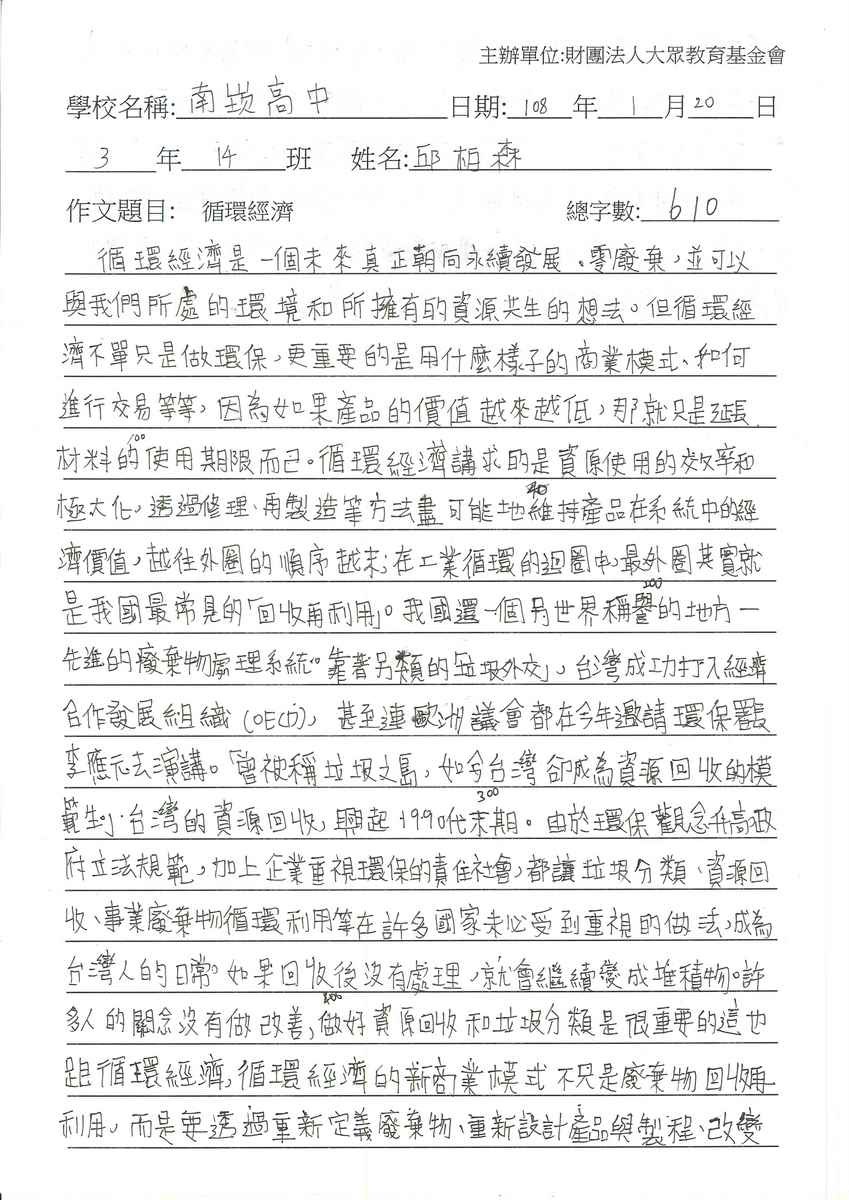 主辦單位:財團法人大眾教育基金會
學校名稱: 南崁高中 日期: 108 年 1 月 20 日
3 年 14 班 姓名: 邱柏森
作文題目: 循環經濟 總字數: 610
循環經濟是一個未來真正朝向永續發展、零廢棄,並可以
與我們所處的環境和所擁有的資源共生的想法。但循環經
濟不單只是做環保,更重要的是用什麼樣子的商業模式、如何
進行交易等等,因為如果產品的價值越來越低,那就只是延長
100
材料的使用期限而已。循環經濟講求的是資原使用的效率和
極大化,透過修理、再製造等方法盡可能地維持產品在系統中的經
濟價值,越往外圈的順序越末;在工業循環的迴圈中,最外圈其實就
200
是我國最常見的「回收再利用」。我國還一個另世界稱譽的地方—
先進的廢棄物處理系統。靠著另類的「垃圾外交」,台灣成功打入經濟
合作發展組織(OECD),甚至連歐洲議會都在今年邀請環保署長
李應元去演講。「曾被稱垃圾之島,如今台灣卻成為資源回收的模
300
範生」台灣的資源回收,興起1990代末期。由於環保觀念升高政
府立法規範,加上企業重視環保的責任社會,都讓垃圾分類、資源回
收、事業廢棄物循環利用等在許多國家未必受到重視的做法,成為
台灣人的日常。如果回收後沒有處理,就會繼續變成堆積物。許
400
多人的關念沒有做改善,做好資原回收和垃圾分類是很重要的這也
跟循環經濟,循環經濟的新商業模式不只是廢棄物回收再
利用,而是要透過重新定義廢棄物、重新設計產品與製程、改變